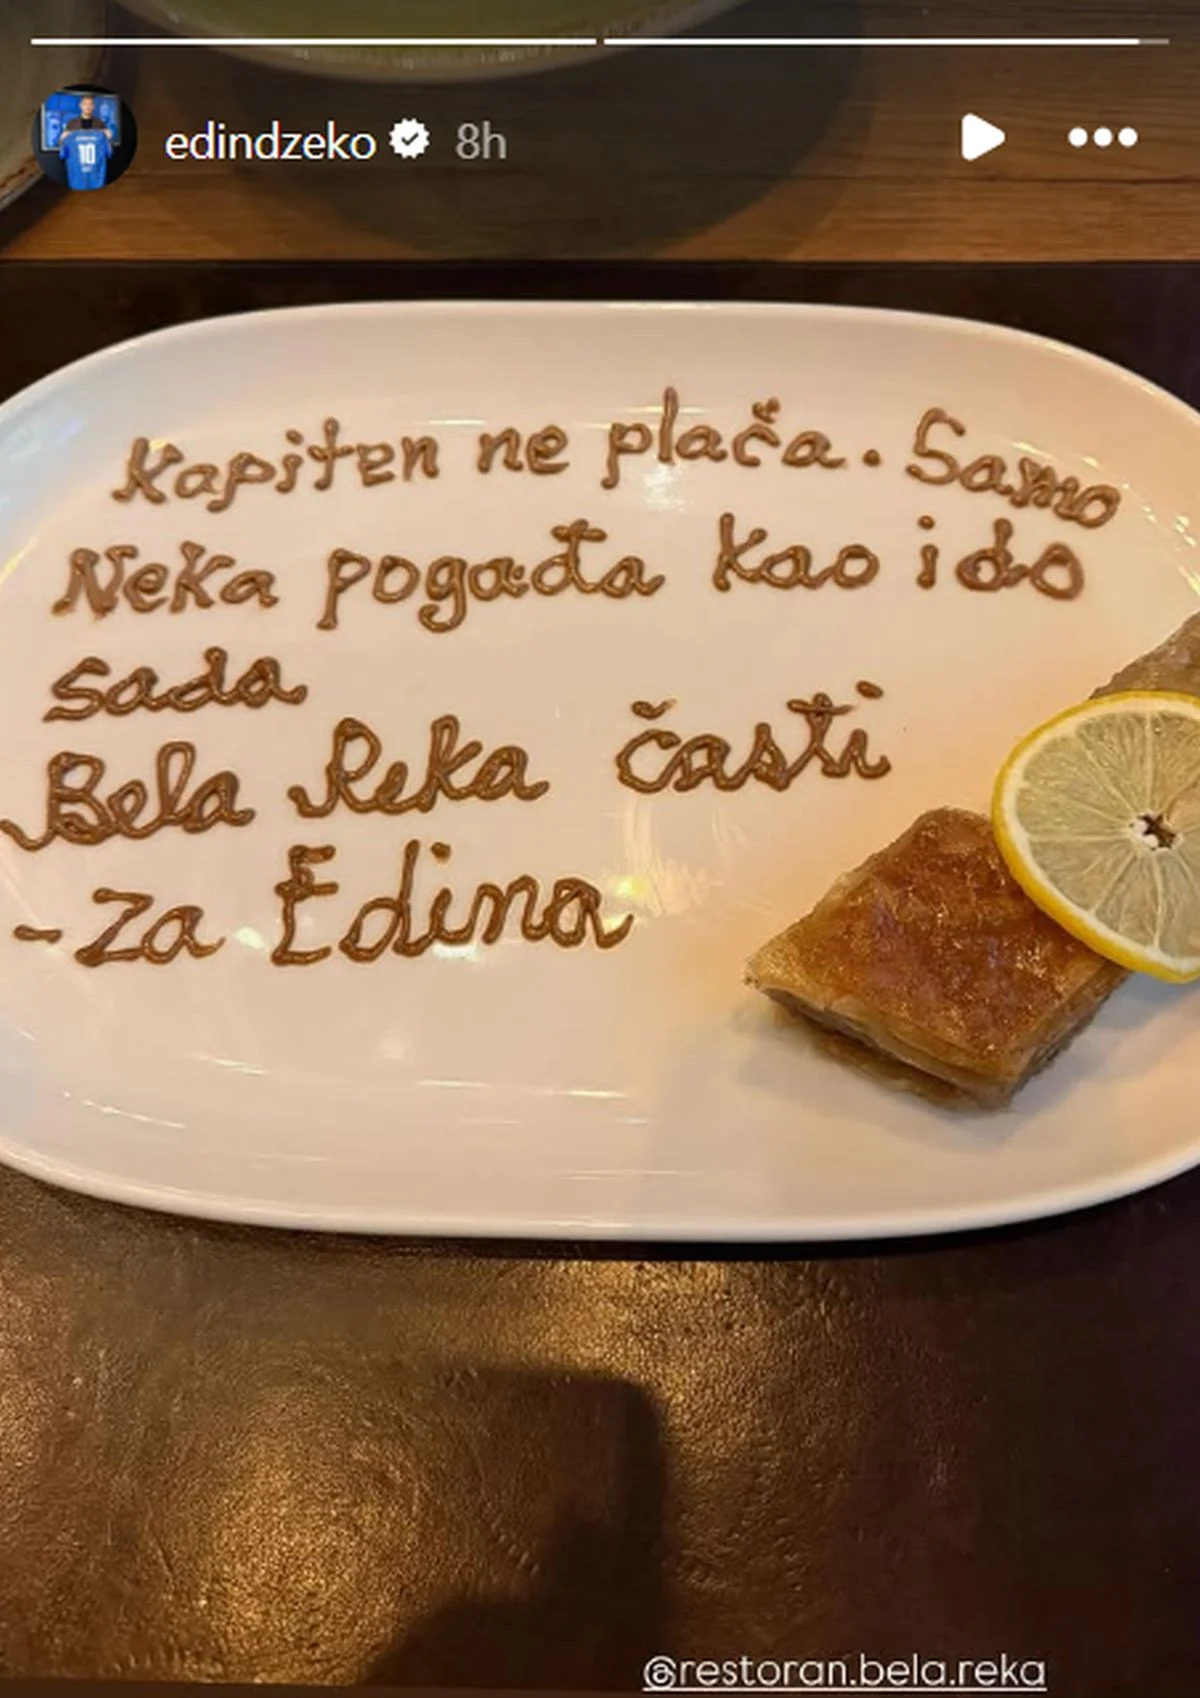 edindzeko 8h
Kapiten ne plača. Samo
Neka pogađa kao i do
sada
Bela Reka časti
- Za Edina
@restoran.bela.reka